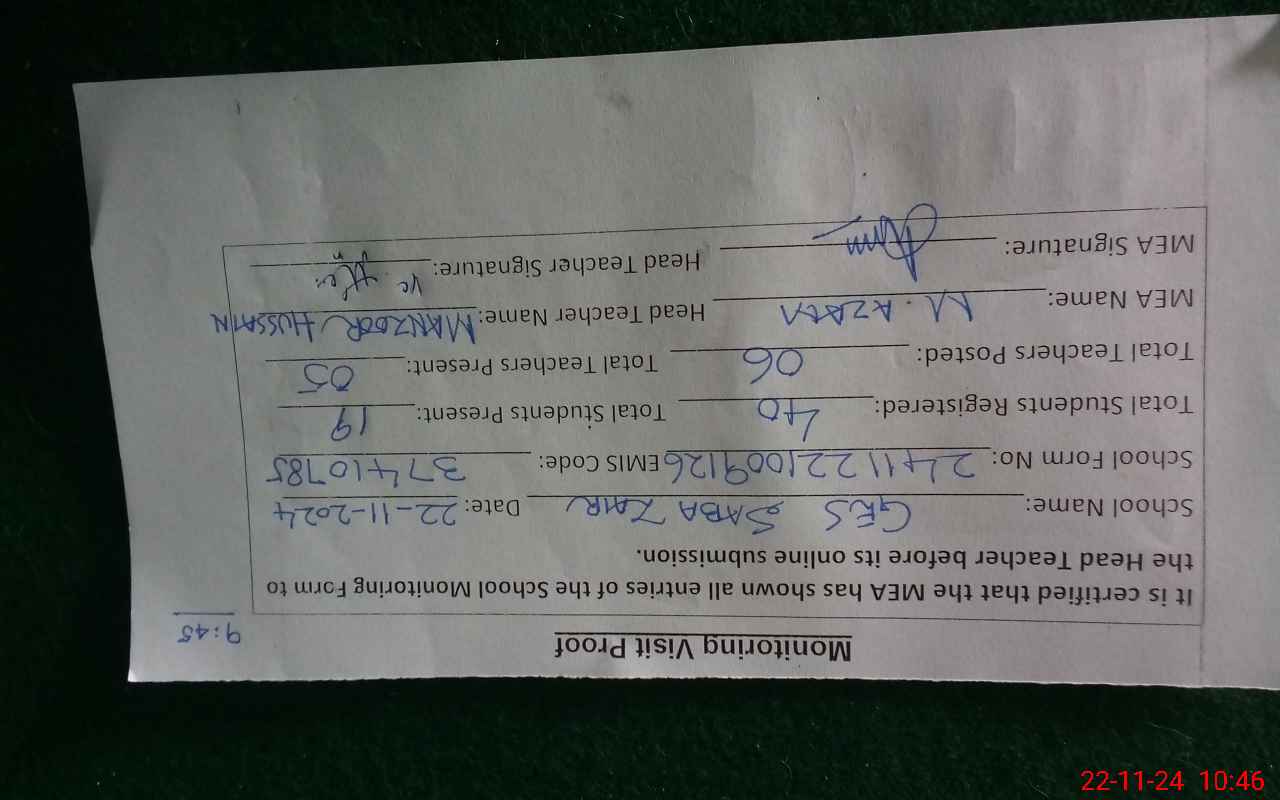 Monitoring Visit Proof
9:45
It is certified that the MEA has shown all entries of the School Monitoring Form to
the Head Teacher before its online submission.
School Name: GES SABA ZAIR Date: 22-11-2024
School Form No: 2411221009126 EMIS Code: 37410785
Total Students Registered: 40 Total Students Present: 19
Total Teachers Posted: 06 Total Teachers Present: 05
MEA Name: M. AZAM Head Teacher Name: MANZOOR HUSSAIN
MEA Signature: Head Teacher Signature:
22-11-24 10:46